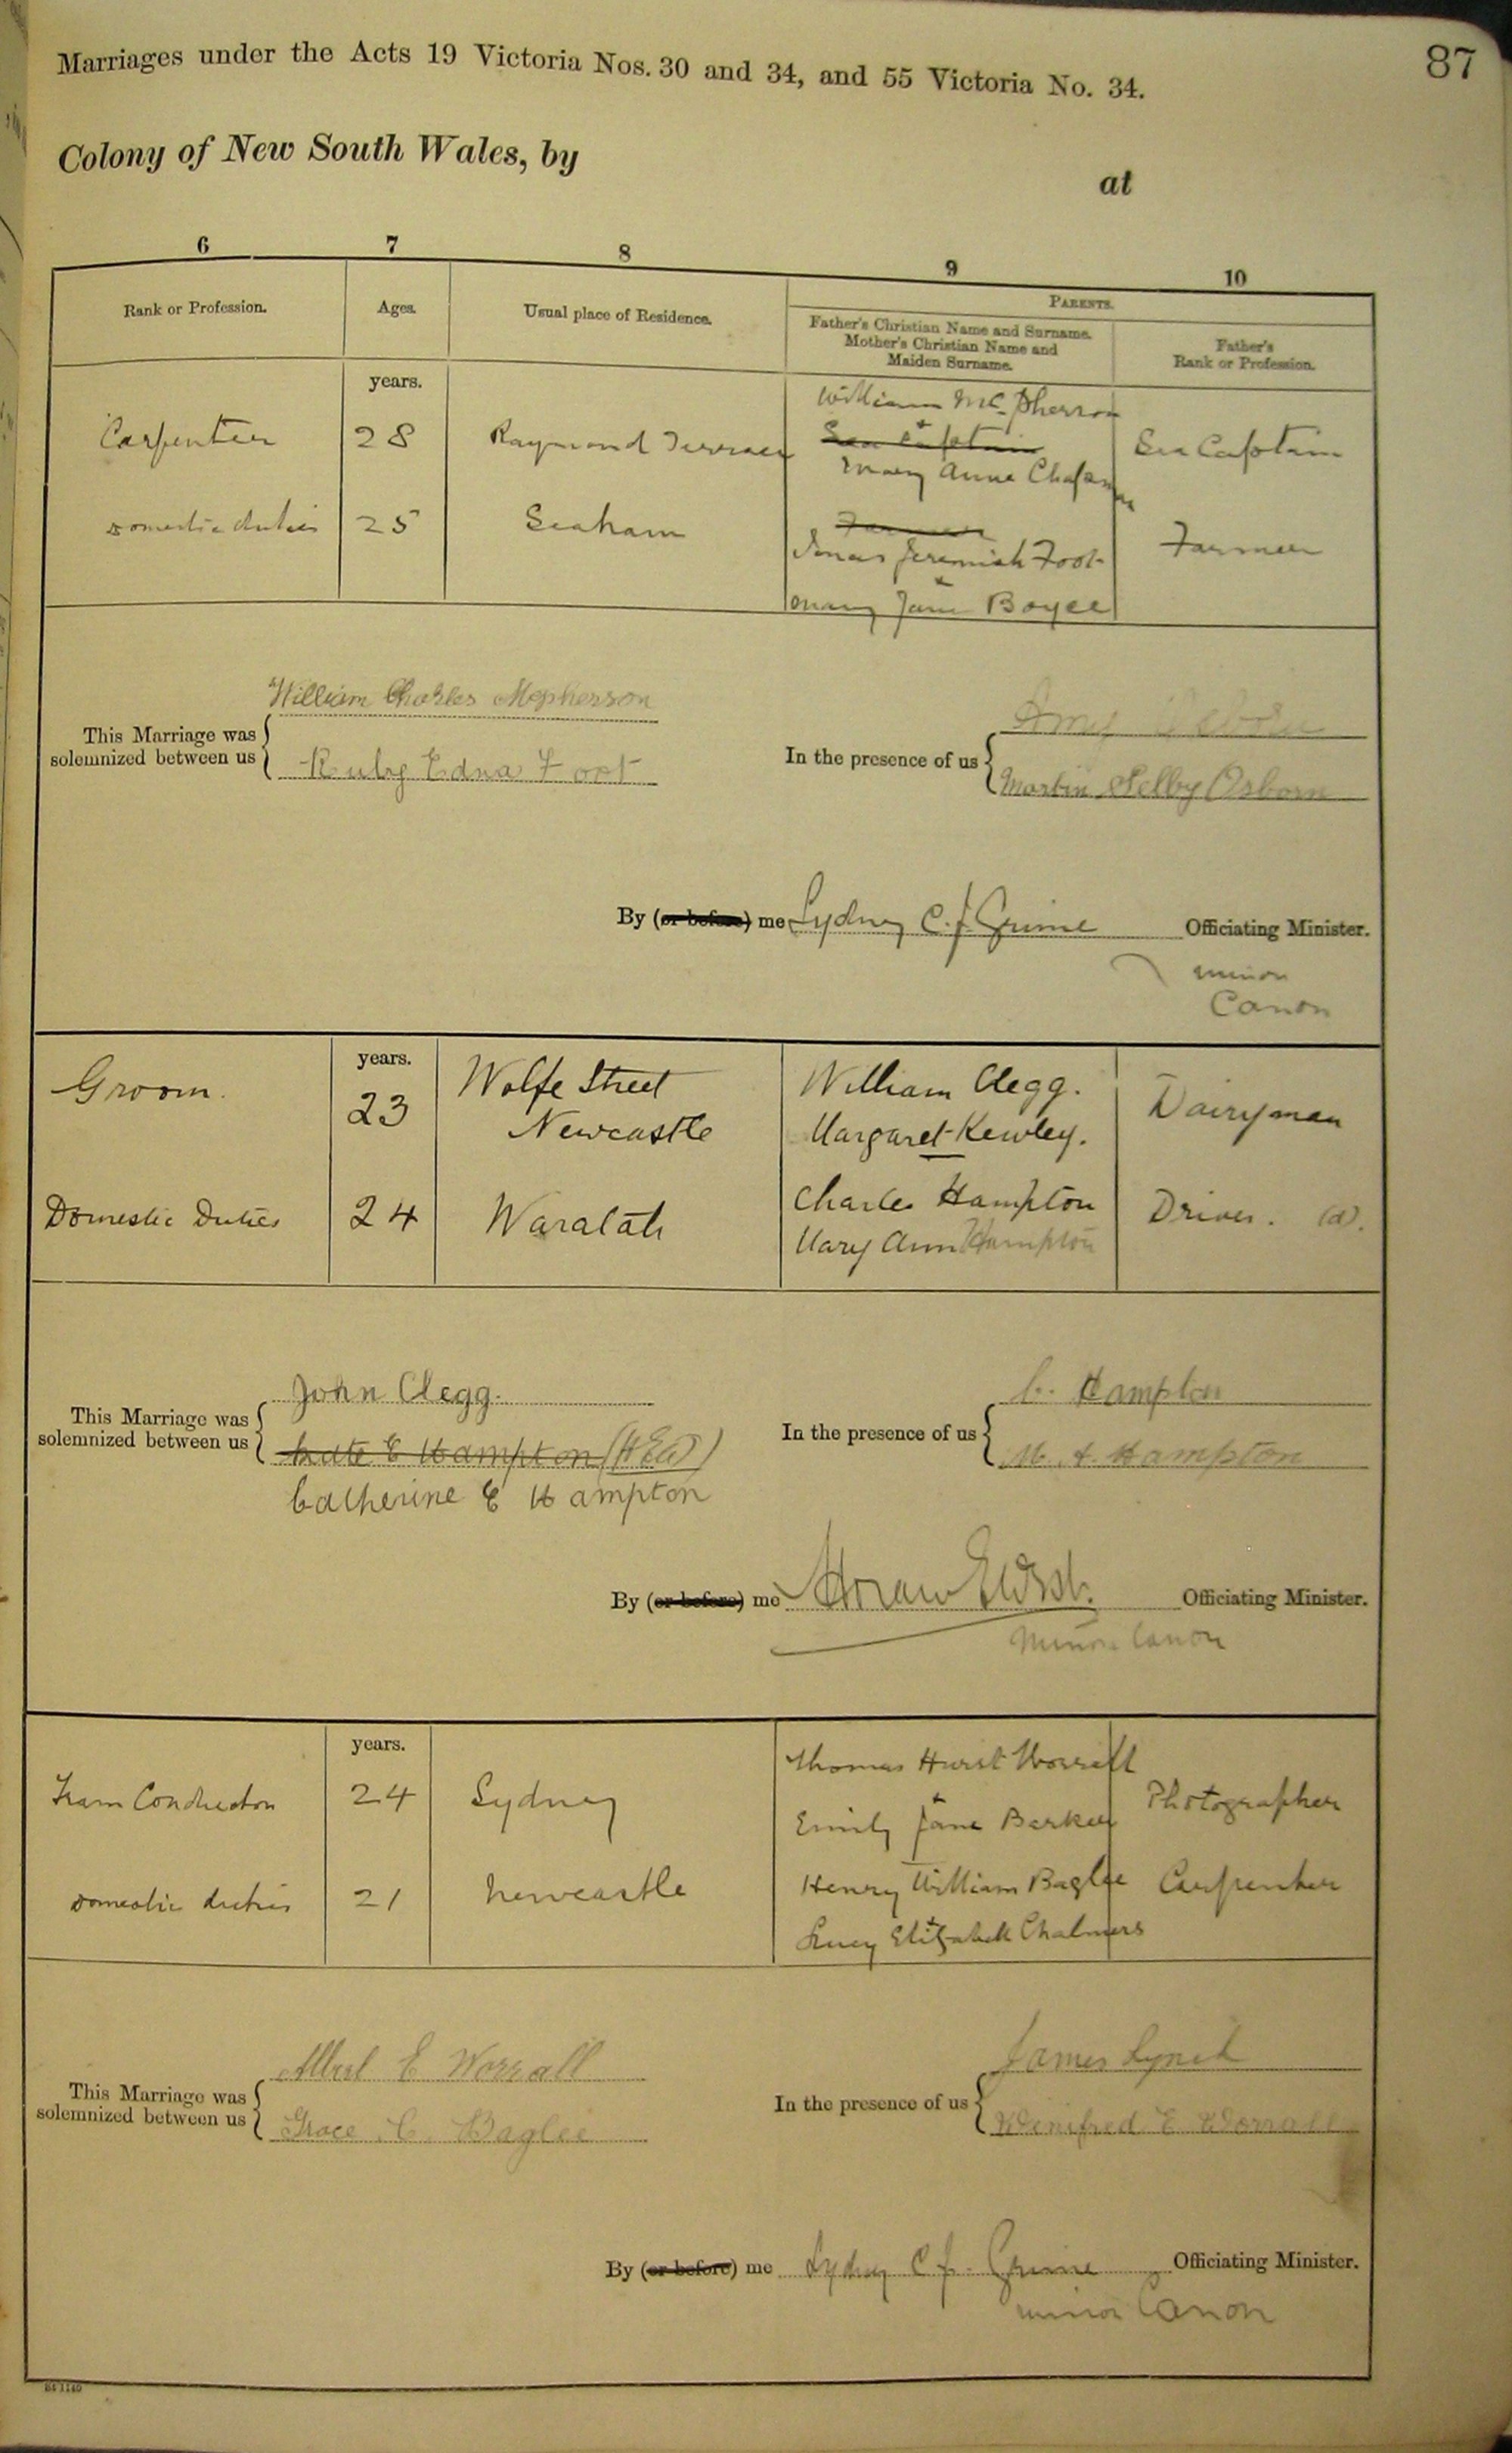 87
Marriages under the Acts 19 Victoria Nos. 30 and 34, and 55 Victoria No. 34.
Colony of New South Wales, by
at
6 7 8 9 10
Rank or Profession. Ages. Usual place of Residence. PARENTS.
Father's Christian Name and Surname. Mother's Christian Name and Maiden Surname. Father's Rank or Profession.
years.
William McPherson
Carpenter 28 Raymond Terrace Sea Captain Sea Captain
Mary Anne Chapman
Farmer
Domestic duties 25 Seaham Jeremiah Foot Farmer
Mary Jane Boyce
William Charles Mcpherson
This Marriage was solemnized between us
Ruby Edna Foot
Amy
In the presence of us
Martin Selby Osborn
By (or before) me Sydney C. J. Grime Officiating Minister.
Minor
Canon
years.
Groom. 23 Wolfe Street William Clegg. Dairyman
Newcastle Margaret Kewley.
Domestic Duties 24 Waratah Charles Hampton Driver. (d).
Mary Ann Hampton
John Clegg.
This Marriage was solemnized between us
Kate E Hampton (HEW)
Catherine E Hampton
C. Hampton
In the presence of us
M. A. Hampton
By (or before) me Officiating Minister.
Minor Canon
years.
Thomas Hurst Worrall
Tram Conductor 24 Sydney Photographer
Emily Jane Barker
Domestic duties 21 Newcastle Henry William Baglee Carpenter
Lucy Elizabeth Chalmers
Albert E Worrall
This Marriage was solemnized between us
Grace C. Baglee
James Lynch
In the presence of us
Winifred E Worrall
By (or before) me Sydney C J. Grime Officiating Minister.
Minor Canon